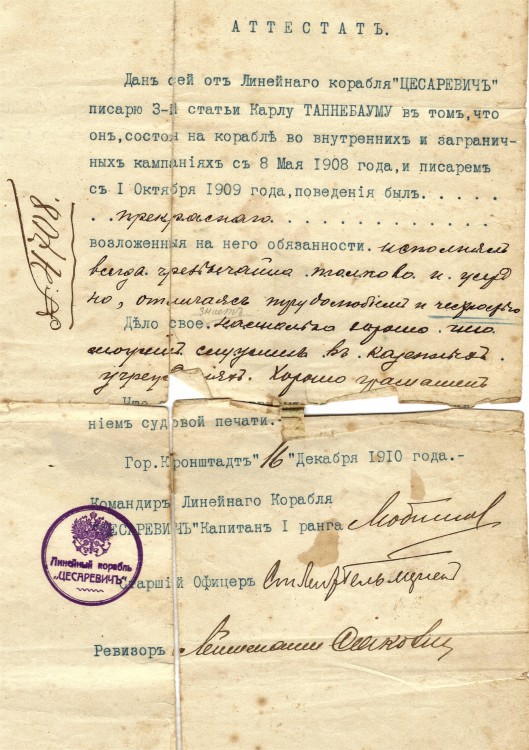 АТТЕСТАТЪ.
Данъ сей отъ Линейнаго корабля "ЦЕСАРЕВИЧЪ"
писарю 3-й статьи Карлу ТАННЕБАУМУ въ томъ, что
онъ, состоя на кораблѣ во внутреннихъ и заграничн-
ныхъ кампаніяхъ съ 8 Мая 1908 года, и писаремъ
съ I Октября 1909 года, поведенія былъ. . . . . .
. . прекраснаго . . . . . . . . . . . .
возложенныя на него обязанности. исполнялъ
всегда чрезвычайно толково и усерд
но, отличаясь трудолюбіемъ и честностью
знаетъ
Дѣло свое. настолько хорошо что
можетъ служить въ казенныхъ.
учрежденіяхъ. Хорошо грамотенъ
Что
ніемъ судовой печати.-
Гор. Кронштадтъ "16" Декабря 1910 года.-
Командиръ Линейнаго Корабля
ЦЕСАРЕВИЧЪ" Капитанъ I ранга Любимов
Старшій Офицеръ Ст. Лейт.
Ревизоръ Лейтенантъ
№ 4708.
Линейный корабль
„ЦЕСАРЕВИЧЪ"